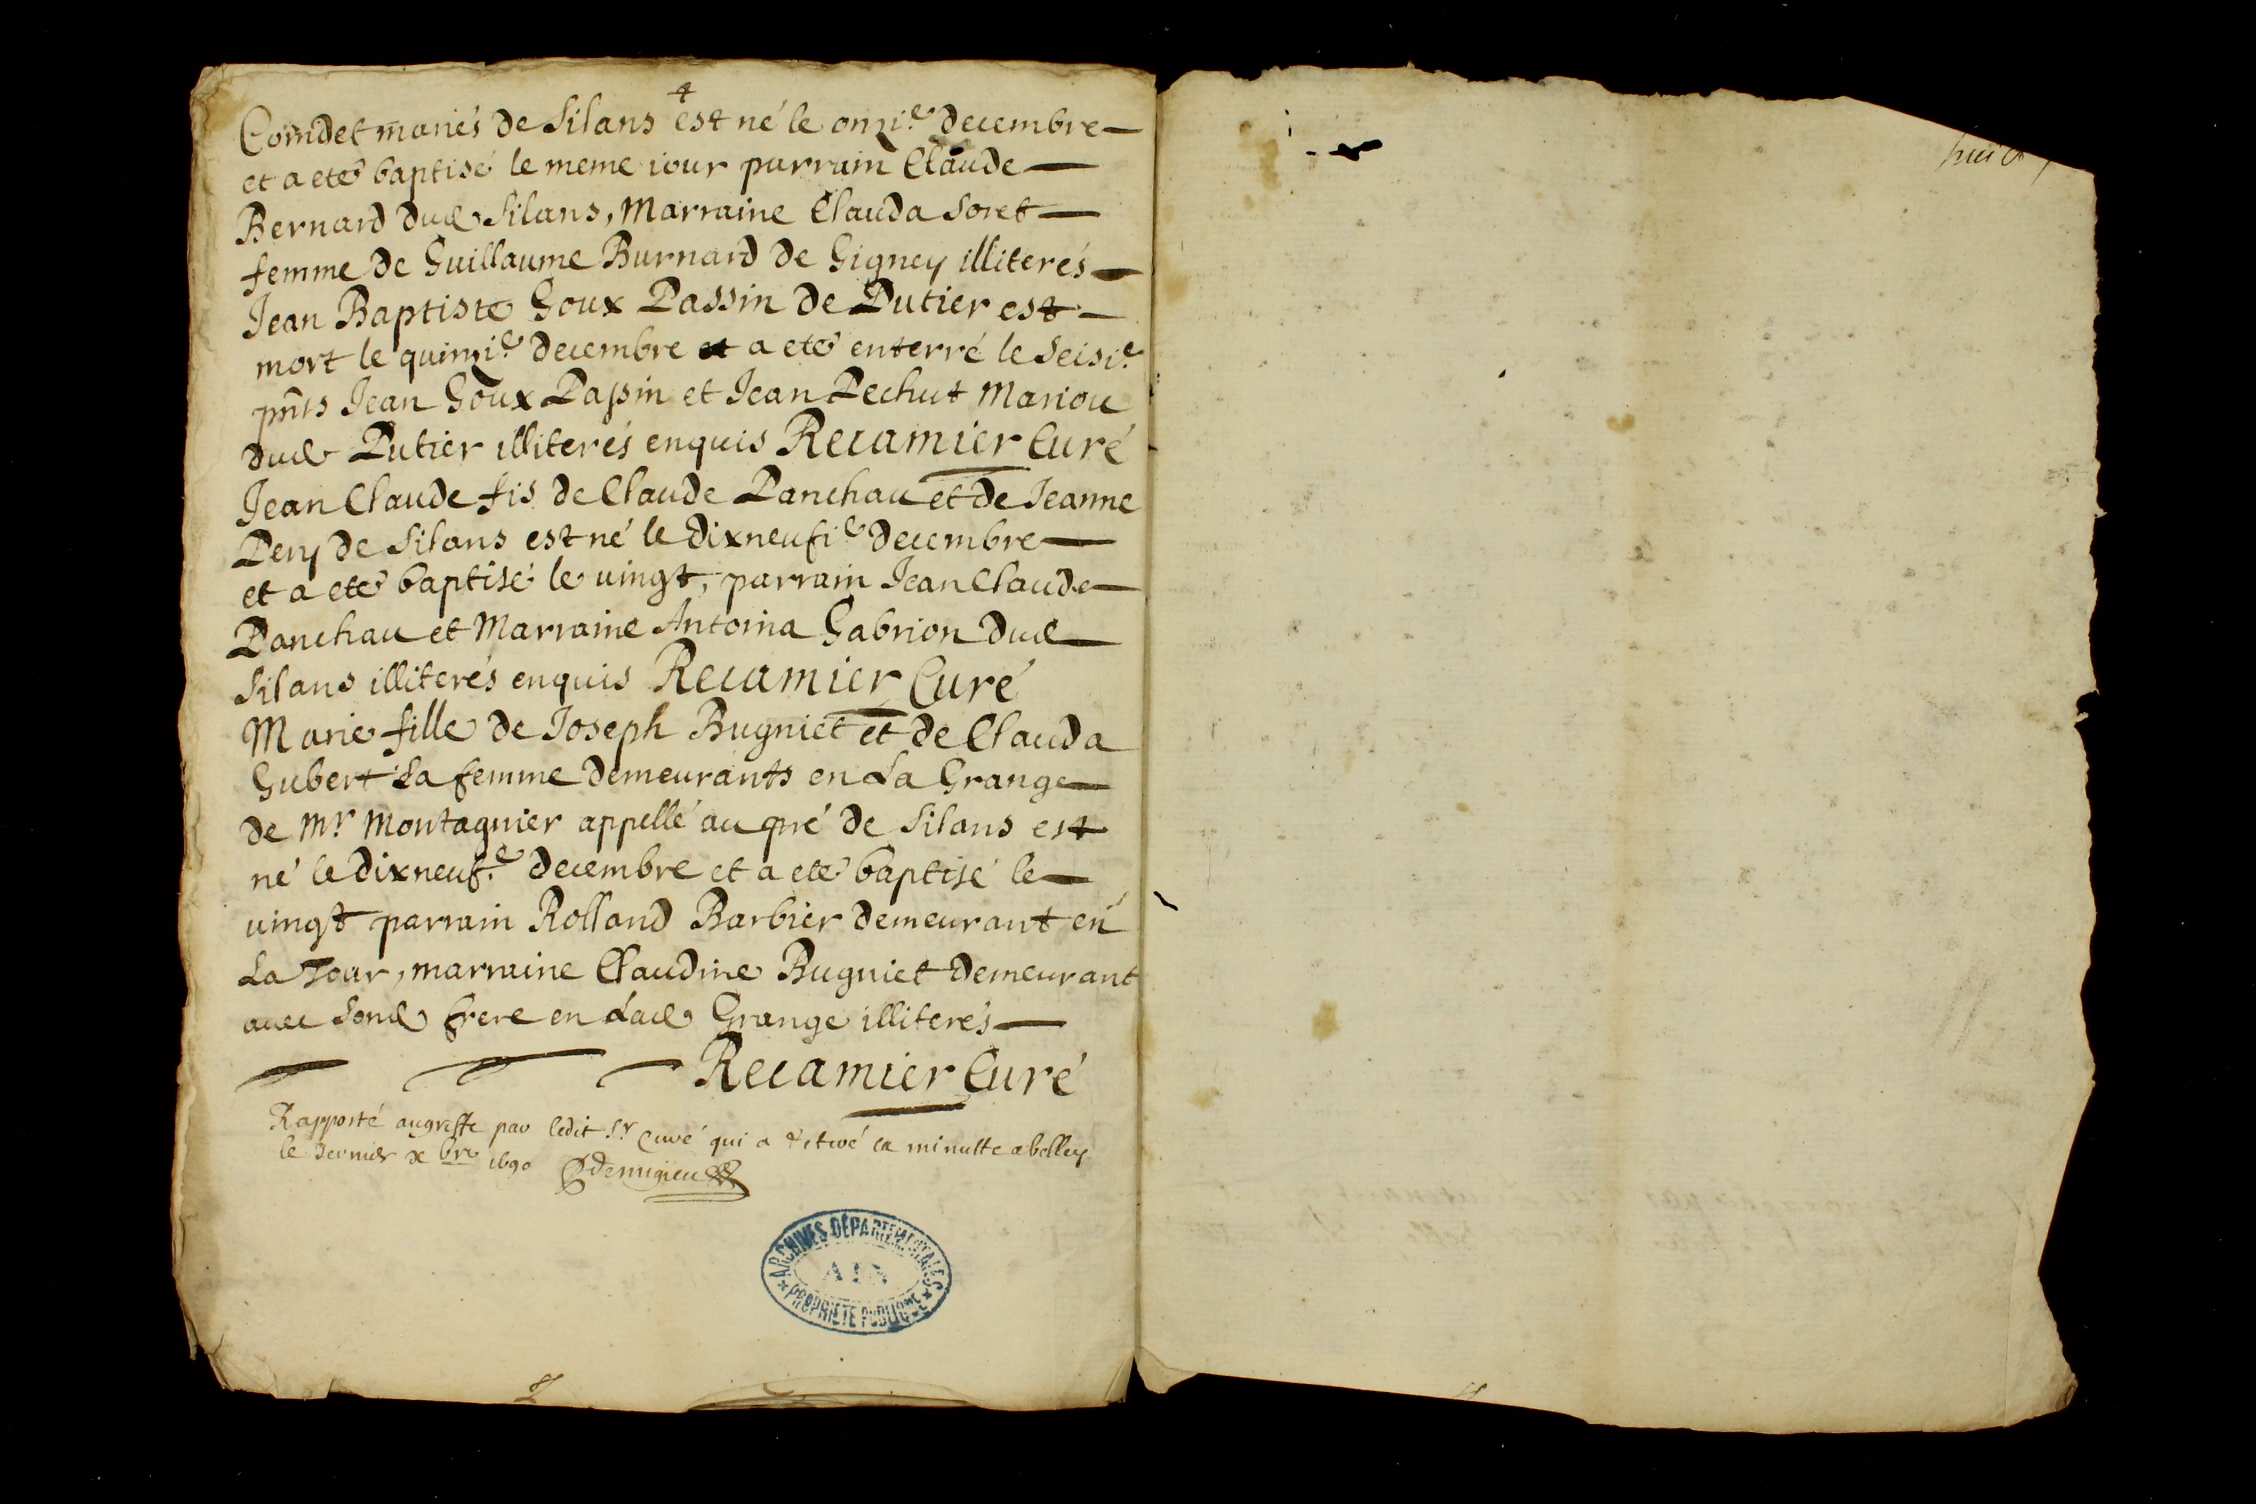 4
Comdet mariés de Silans est né le onzie decembre
et a eté baptisé le meme iour parrain Claude
Bernard dud Silans, Marraine Clauda Soret
femme de Guillaume Burnard de Gigney illiterés
Jean Baptiste Goux Passin de Putier est
mort le quinzie decembre et a eté enterré le Seisie
pnts Jean Goux Passin et Jean Pechut Mariou
dud Putier illiterés enquis Recamier Curé
Jean Claude fis de Claude Panchau et de Jeanne
Peny de Silans est né le dixneufie decembre
et a eté baptisé le vingt, parrain Jean Claude
Panchau et Marraine Antoina Gabrion dud
Silans illiterés enquis Recamier Curé
Marie fille de Joseph Bugniet et de Clauda
Gubert Sa femme demeurants en La Grange
de Mr Montagnier appellé au pré de Silans est
né le dixneufe decembre et a eté baptisé le
vingt parrain Rolland Barbier demeurant en
La Tour, marraine Claudine Bugniet demeurant
avec Sond frere en Lad Grange illiterés
Recamier Curé
Rapporté au greffe par ledit Sr Curé qui a retiré sa minutte a belley
le dernier xbre 1690 Demugieu
ARCHIVES DÉPARTEMENTALES
AIN
PROPRIÉTÉ PUBLIQUE